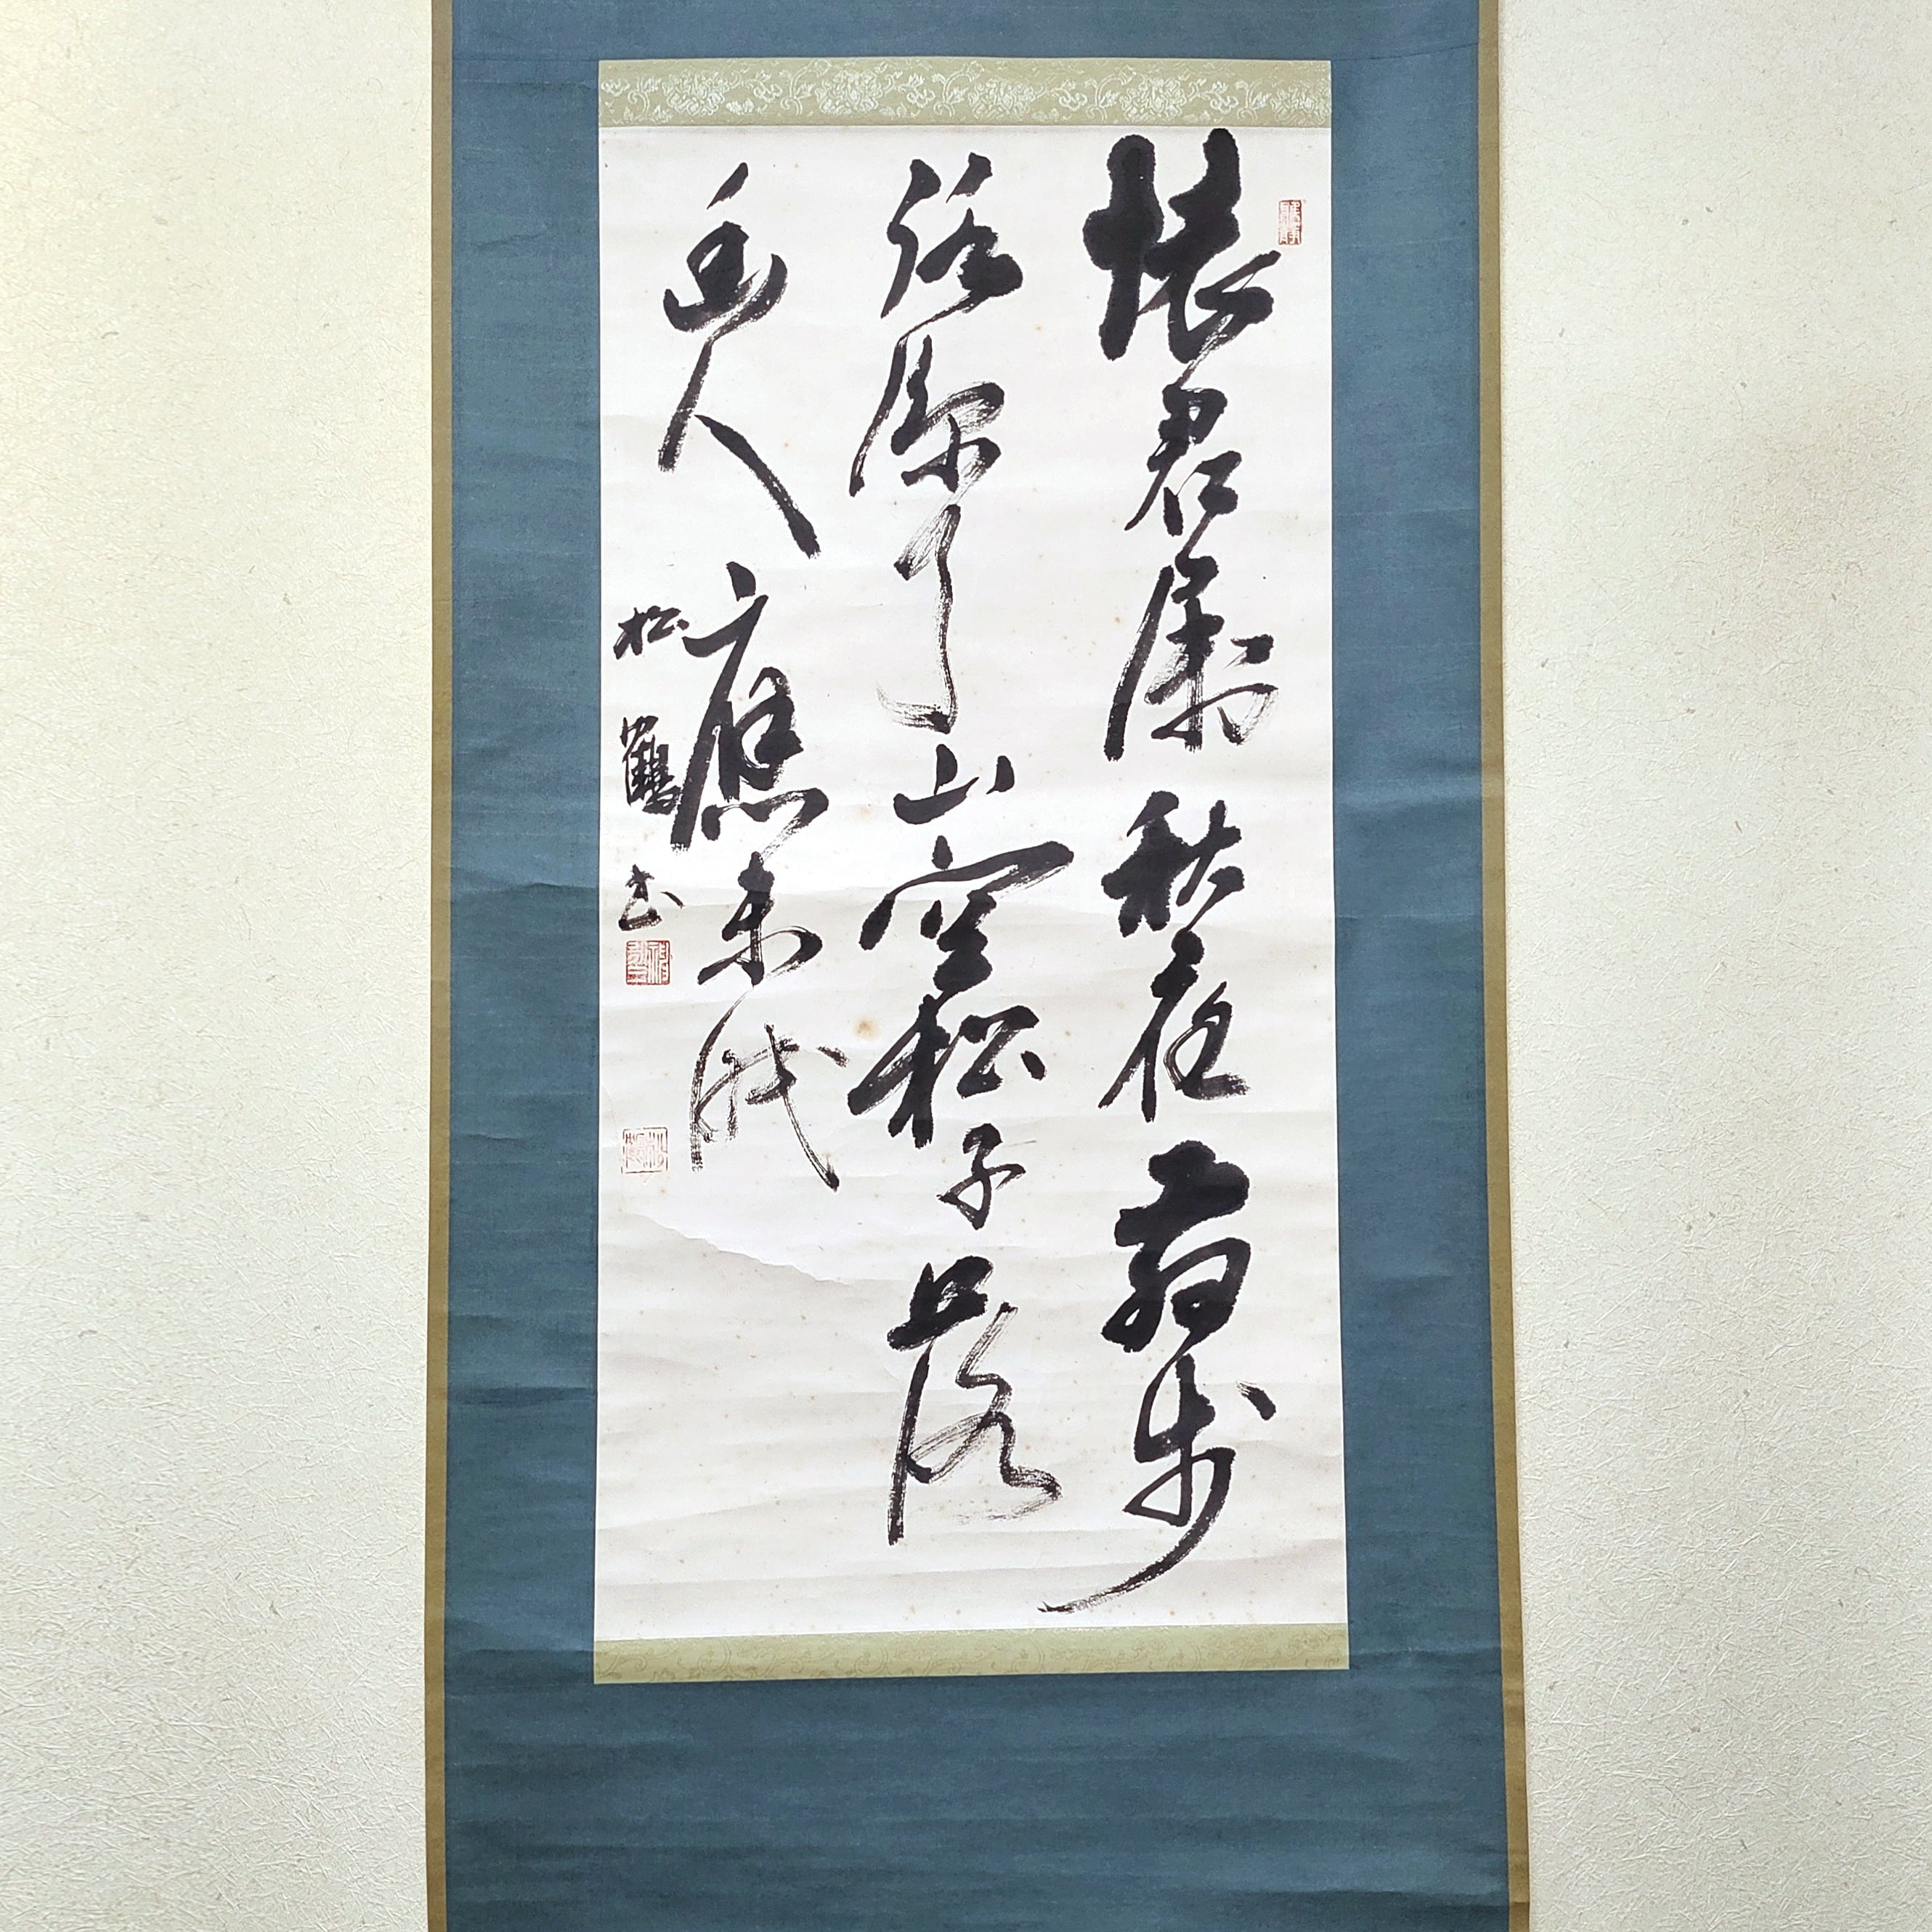 懐君属秋夜散歩
詠涼天山空松子落
幽人應未眠
松鶴書